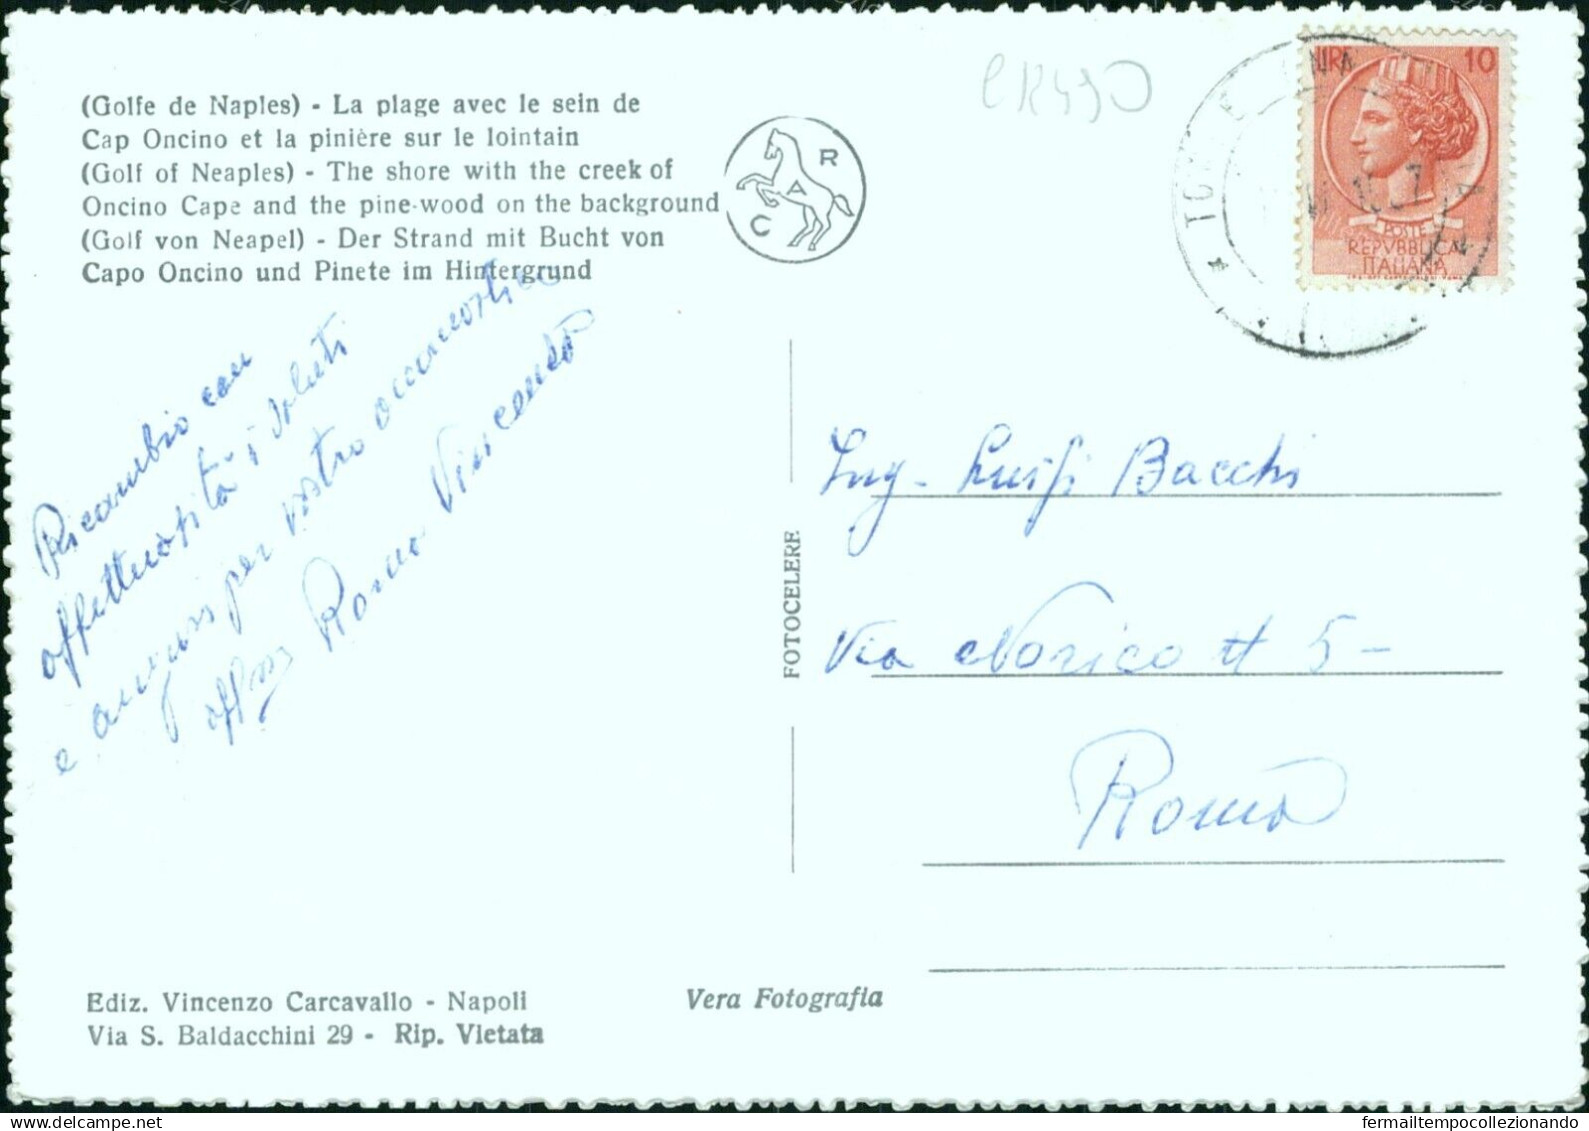 (Golfe de Naples) - La plage avec le sein de
Cap Oncino et la pinière sur le lointain
(Golf of Neaples) - The shore with the creek of
Oncino Cape and the pine-wood on the background
(Golf von Neapel) - Der Strand mit Bucht von
Capo Oncino und Pinete im Hintergrund
C A R
LIRE 10
POSTE
REPVBBLICA
ITALIANA
Ricambio con
affettuosità i saluti
e auguri per vostro onomastico
Romano Vincenzo
FOTOCELERE
Ing. Luigi Bacchi
Via Norico # 5-
Roma
Ediz. Vincenzo Carcavallo - Napoli
Via S. Baldacchini 29 - Rip. Vietata
Vera Fotografia
fermailtempocollezionando